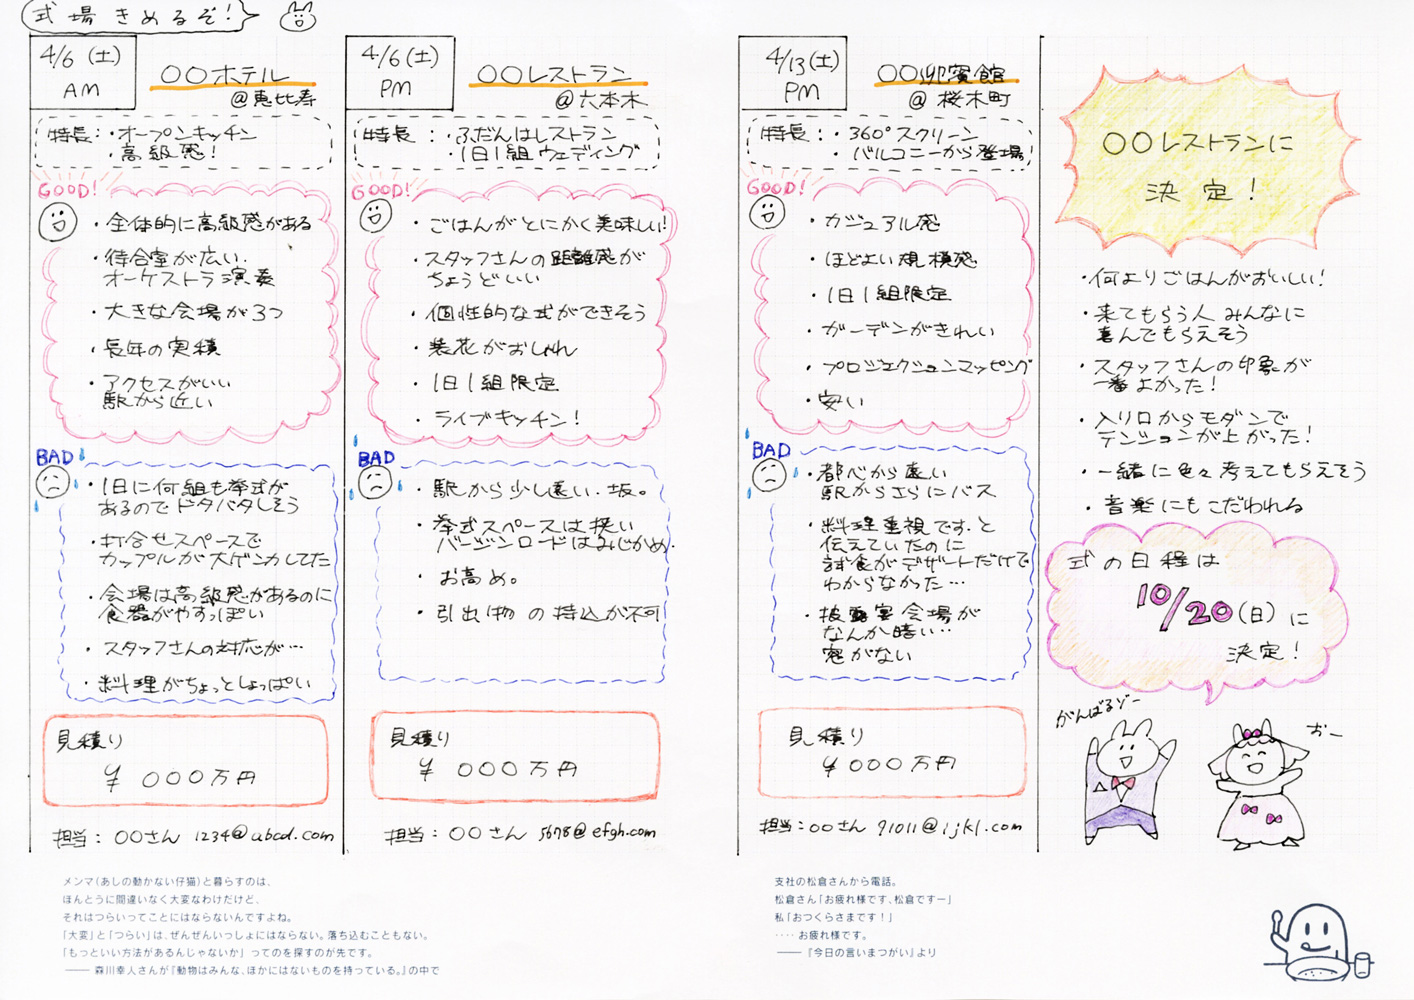 式場きめるぞ!
4/6(土)
AM
〇〇ホテル
@恵比寿
特長:・オープンキッチン
・高級感!
GOOD!
・全体的に高級感がある
・待合室が広い.
オーケストラ演奏
・大きな会場が3つ
・長年の実積
・アクセスがいい
駅から近い
BAD
・1日に何組も挙式が
あるのでドタバタしそう
・打合せスペースで
カップルが大ゲンカしてた
・会場は高級感があるのに
食器がやすっぽい
・スタッフさんの対応が…
・料理がちょっとしょっぱい
見積り
¥ 〇〇〇万円
担当:〇〇さん 1234@abcd.com
4/6(土)
PM
〇〇レストラン
@六本木
特長:・ふだんはレストラン
・1日1組ウェディング
GOOD!
・ごはんがとにかく美味しい!
・スタッフさんの距離感が
ちょうどいい
・個性的な式ができそう
・装花がおしゃれ
・1日1組限定
・ライブキッチン!
BAD
・駅から少し遠い.坂。
・挙式スペースは狭い
バージンロードはみじかめ.
・お高め。
・引出物の持込が不可
見積り
¥ 〇〇〇万円
担当:〇〇さん 5678@efgh.com
4/13(土)
PM
〇〇迎賓館
@ 桜木町
特長:・360°スクリーン
・バルコニーから登場
GOOD!
・カジュアル感
・ほどよい規模感
・1日1組限定
・ガーデンがきれい
・プロジェクションマッピング
・安い
BAD
・都心から遠い
駅からさらにバス
・料理重視です.と
伝えていたのに
試食がデザートだけで
わからなかった…
・披露宴会場が
なんか暗い‥
窓がない
見積り
¥〇〇〇万円
担当:〇〇さん 91011@ijkl.com
〇〇レストランに
決定!
・何よりごはんがおいしい!
・来てもらう人みんなに
喜んでもらえそう
・スタッフさんの印象が
一番よかった!
・入り口からモダンで
テンションが上がった!
・一緒に色々考えてもらえそう
・音楽にもこだわれる
式の日程は
10/20(日)に
決定!
がんばるゾー
おー
メンマ(あしの動かない仔猫)と暮らすのは、
ほんとうに間違いなく大変なわけだけど、
それはつらいってことにはならないんですよね。
「大変」と「つらい」は、ぜんぜんいっしょにはならない。落ち込むこともない。
「もっといい方法があるんじゃないか」ってのを探すのが先です。
――森川幸人さんが『動物はみんな、ほかにはないものを持っている。』の中で
支社の松倉さんから電話。
松倉さん「お疲れ様です、松倉ですー」
私「おつくらさまです!」
‥‥お疲れ様です。
――『今日の言いまつがい』より